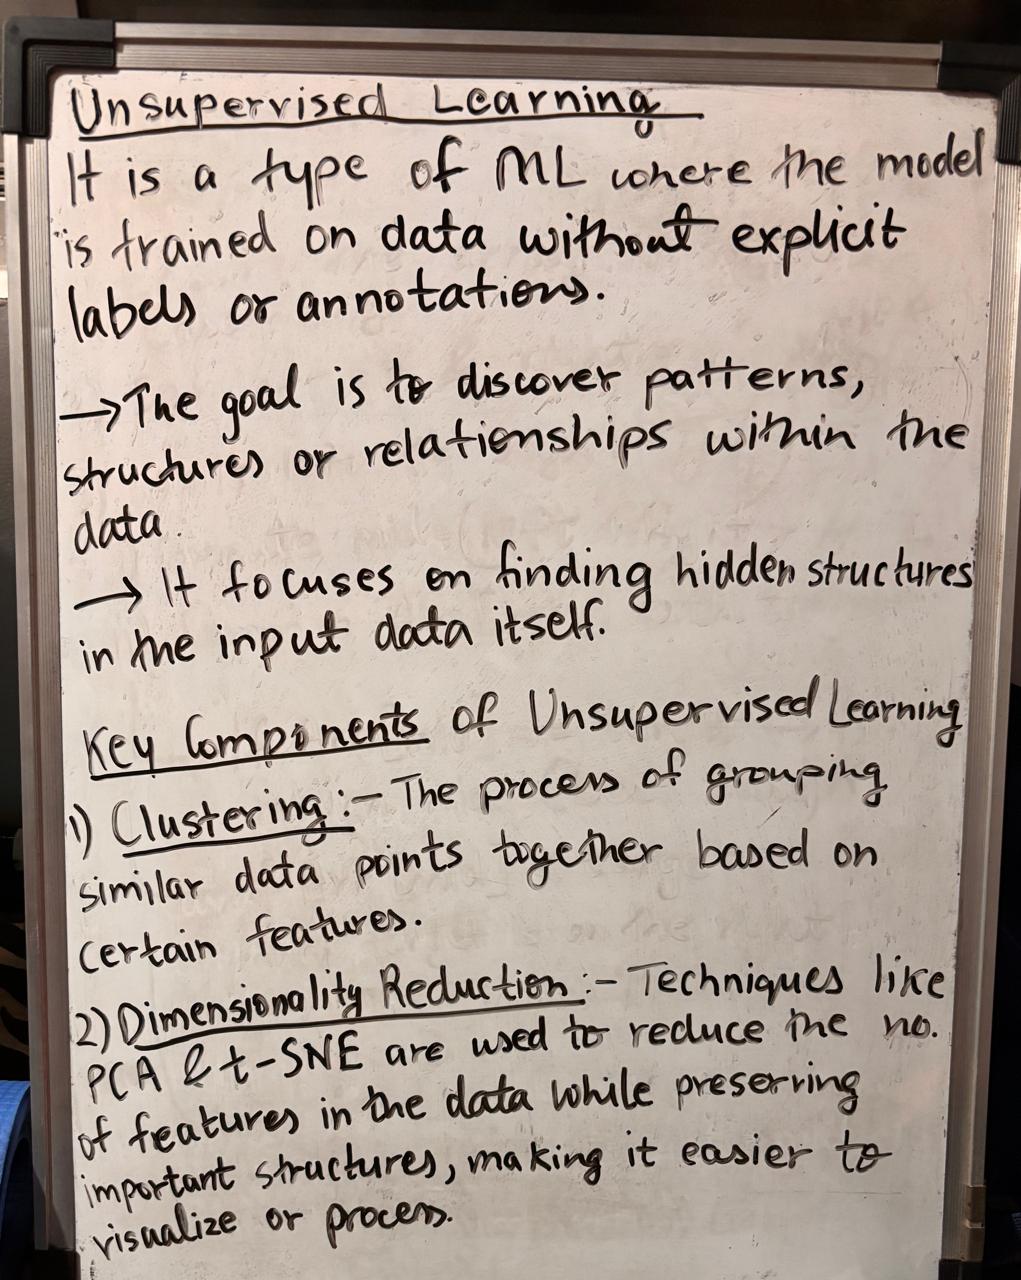 Unsupervised Learning
It is a type of ML where the model
is trained on data without explicit
labels or annotations.
→ The goal is to discover patterns,
structures or relationships within the
data.
→ It focuses on finding hidden structures
in the input data itself.
Key Components of Unsupervised Learning
1) Clustering :- The process of grouping
similar data points together based on
certain features.
2) Dimensionality Reduction :- Techniques like
PCA & t-SNE are used to reduce the no.
of features in the data while preserving
important structures, making it easier to
visualize or process.